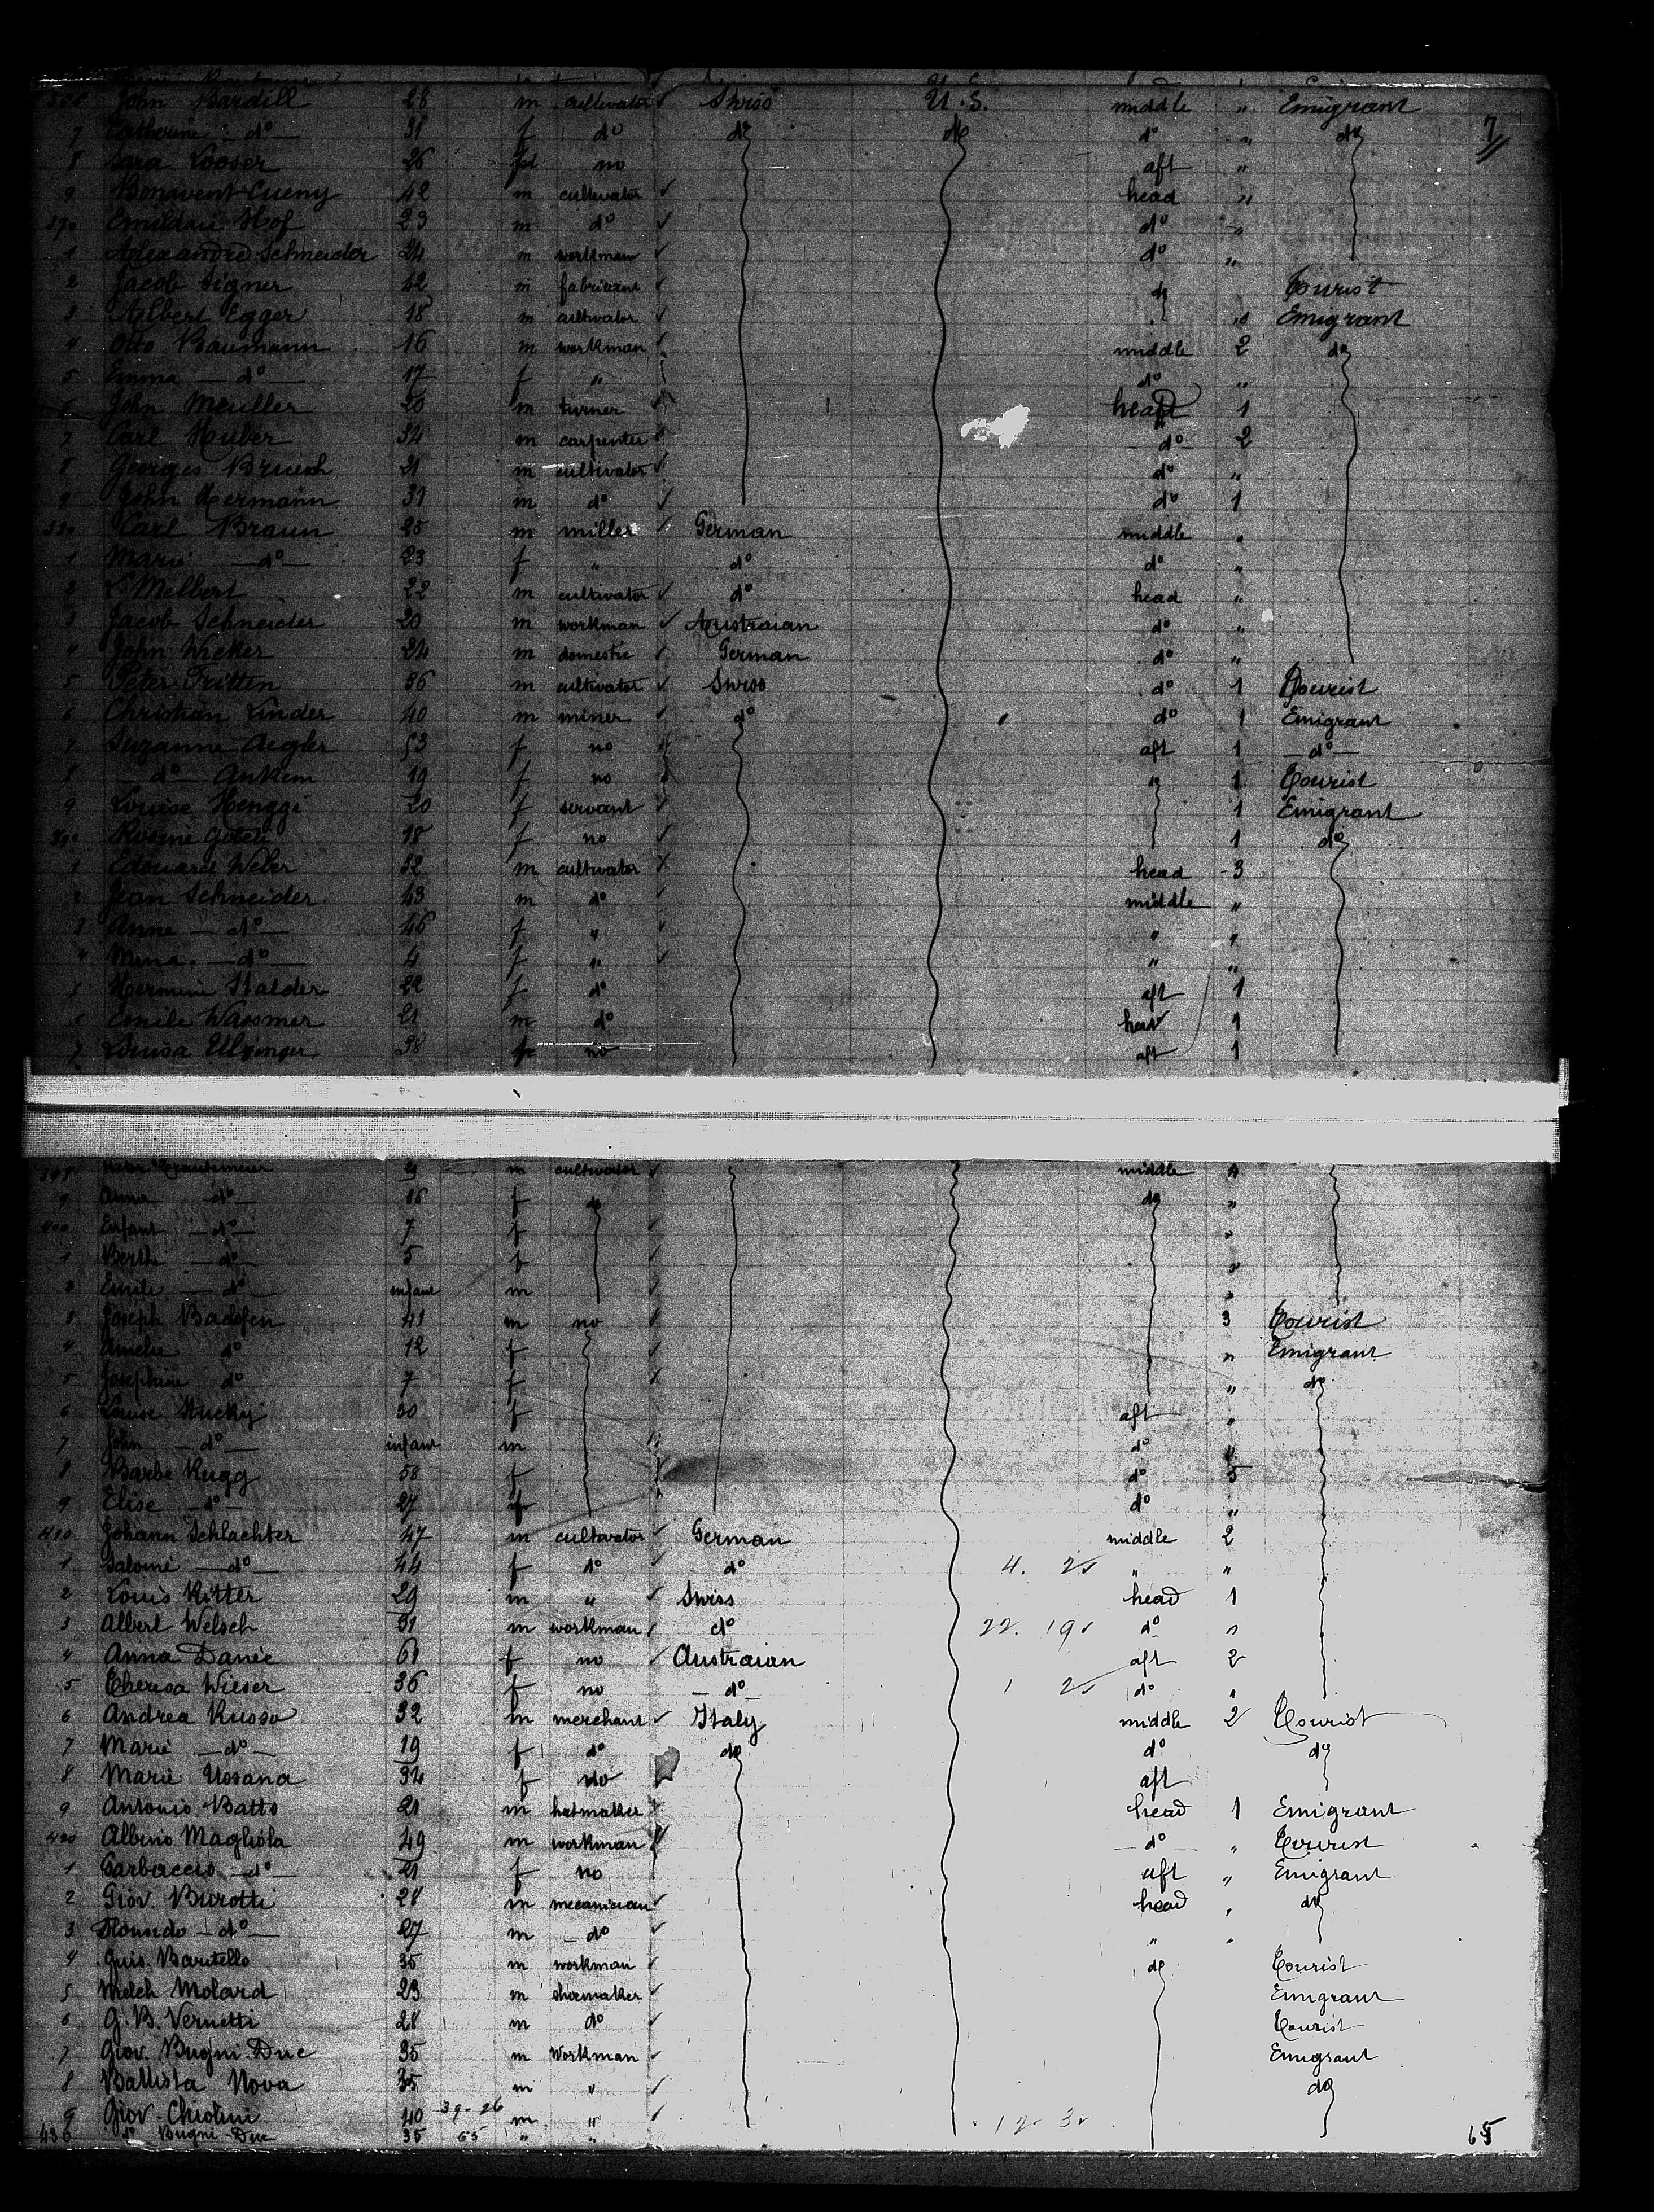 John Bardill 28 m cultivator ✓ Swiss U.S. middle " Emigrant
7 Catherine do 31 f do do do do " do 7
8 Sara Looser 26 f no aft "
9 Bonavent Cueny 42 m cultivator ✓ head "
370 Emilian Hof 23 m do ✓ do "
1 Alexandre Schneider 24 m workman ✓ do "
2 Jacob Signer 42 m fabricant ✓ do Tourist
3 Albert Egger 18 m cultivator ✓ " Emigrant
4 Otto Baumann 16 m workman middle 2 do
5 Emma do 17 f " do "
6 John Meuller 20 m turner 1
7 Carl Huber 34 m carpenter do 2
8 Georges Bruesh 21 m cultivator do "
9 John Hermann 31 m do ✓ do 1
380 Carl Braun 25 m miller German middle "
1 Marie do 23 f " do do "
2 L. Melbert 22 m cultivator ✓ do head "
3 Jacob Schneider 20 m workman ✓ Austraian do "
4 John Wicker 24 m domestic ✓ German do "
5 Peter Tritten 36 m cultivator ✓ Swiss do 1 Tourist
6 Christian Linder 40 m miner ✓ do do 1 Emigrant
7 Suzanne Aegler 53 f no aft 1 do
8 do Ankem 19 f no do 1 Tourist
9 Louise Henggi 20 f servant ✓ 1 Emigrant
390 Rosine 18 f no ✓ 1 do
1 Edouard Weber 32 m cultivator head 3
2 Jean Schneider 43 m do middle "
3 Anne do 46 f " ✓ " "
4 Mina do 4 f " ✓ " "
5 Hermine Stalder 22 f do aft 1
6 Emile Wassmer 21 m do head 1
7 Louisa 38 f no aft 1
398 m cultivator ✓ middle 4
9 Anna do 36 f do do "
400 Enfant do 7 f "
1 Berthe do 5 f "
2 Emile do infant m ✓ "
3 Joseph 41 m no 3 Tourist
4 Amelie do 12 f ✓ " Emigrant
5 Josephine do 7 f ✓ " do
6 Louise Stucky 30 f aft "
7 John do infant m do "
8 Barbe Rugg 58 f do 5
9 Elise do 27 f do "
410 Johann Schlachter 47 m cultivator ✓ German middle 2
1 Salomé do 44 f do ✓ do 4. " "
2 Louis Ritter 29 m " ✓ Swiss head 1
3 Albert Welsch 31 m workman ✓ do 22. do "
4 Anna Danie 61 f no ✓ Austraian aft 2
5 Theresa Wieser 36 f no do do "
6 Andrea Russo 32 m merchant ✓ Italy middle 2 Tourist
7 Marie do 19 f do do do do
8 Marie Rosana 34 f no aft
9 Antonio Batts 21 m hatmaker head 1 Emigrant
420 Albino Magliola 49 m workman do " Tourist
1 Garbaccio do 21 f no aft " Emigrant
2 Giov. Burotti 28 m mecanician ✓ head " do
3 do 27 m do ✓ " "
4 Guis. Baritello 35 m workman ✓ do Tourist
5 Melch Molard 23 m shoemaker ✓ Emigrant
6 G. B. Vernetti 28 m do ✓ Tourist
7 Giov. Bugni Duc 35 m workman ✓ Emigrant
8 Battista Nova 35 m " ✓ do
9 Giov. Chiolini 40 39-26 m " ✓
430 do Bugni-Duc 35 65 " " 65